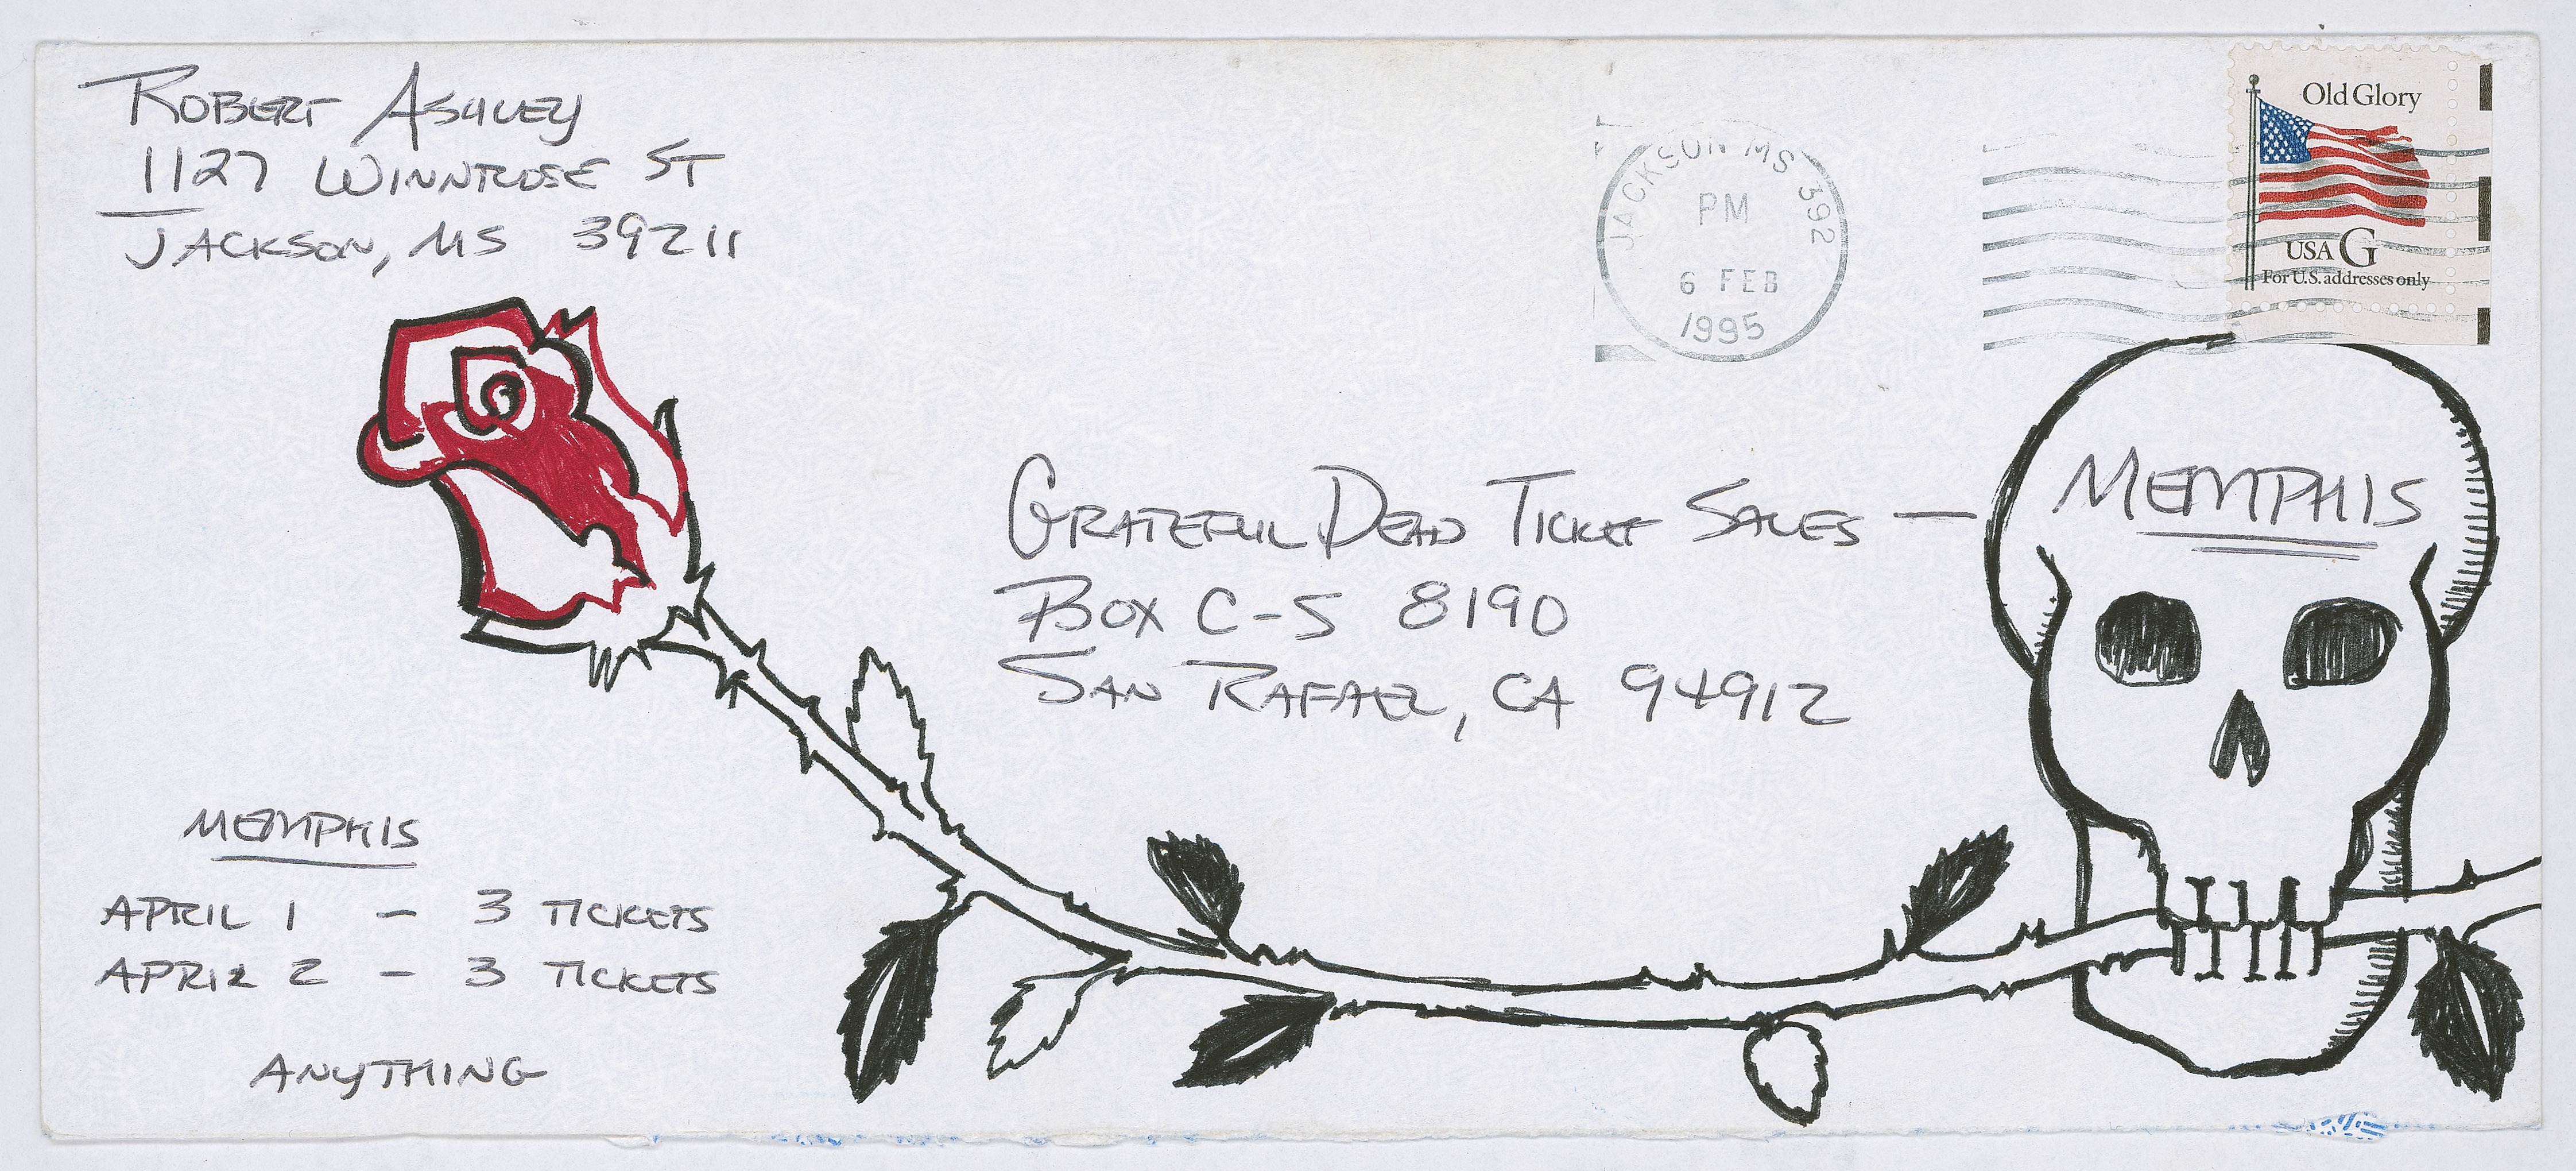 Robert Ashley
1127 Winnrose St
Jackson, MS 39211
JACKSON MS 392
PM
6 FEB
1995
Old Glory
USA G
For U.S. addresses only
Grateful Dead Ticket Sales — Memphis
Box C-S 8190
San Rafael, CA 94912
Memphis
April 1 - 3 Tickets
April 2 - 3 Tickets
Anything